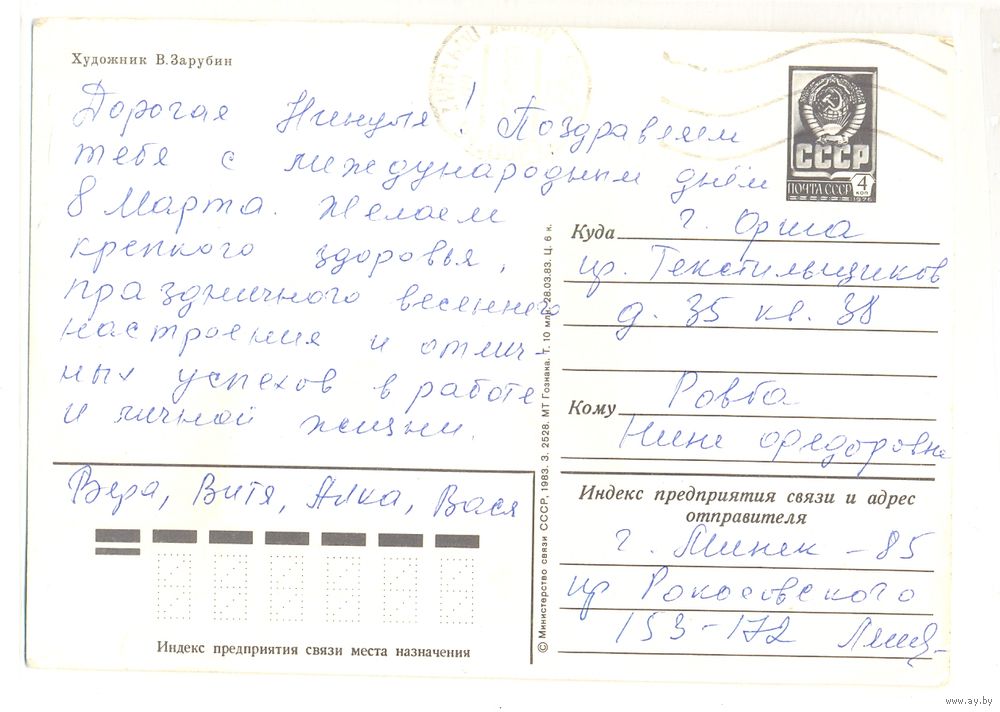 Художник В.Зарубин
Дорогая Нинуля! Поздравляем
тебя с международным днём
8 Марта. Желаем
крепкого здоровья,
праздничного весеннего
настроения и отлич-
ных успехов в работе
и личной жизни.
Вера, Витя, Алка, Вася
Индекс предприятия связи места назначения
© Министерство связи СССР, 1983. З. 2528. МТ Гознака. Т. 10 млн. 28.03.83. Ц. 6 к.
СССР
ПОЧТА СССР 4 КОП
1976
Куда г. Орша
пр. Текстильщиков
д. 35 кв. 38
Кому Ровба
Нине Фёдоровне
Индекс предприятия связи и адрес
отправителя
г. Минск - 85
пр Рокосовского
153-172
www.ay.by